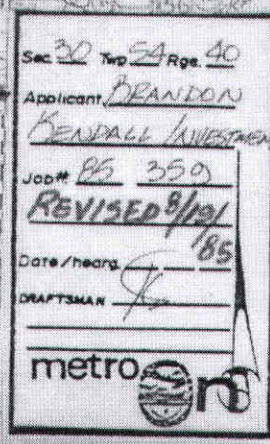 Sec. 30 Twp 54 Rge. 40
Applicant BRANDON
KENDALL INVESTMEN
Job# 85 359
REVISED 8/19/
85
Date/hearg.
DRAFTSMAN
metro